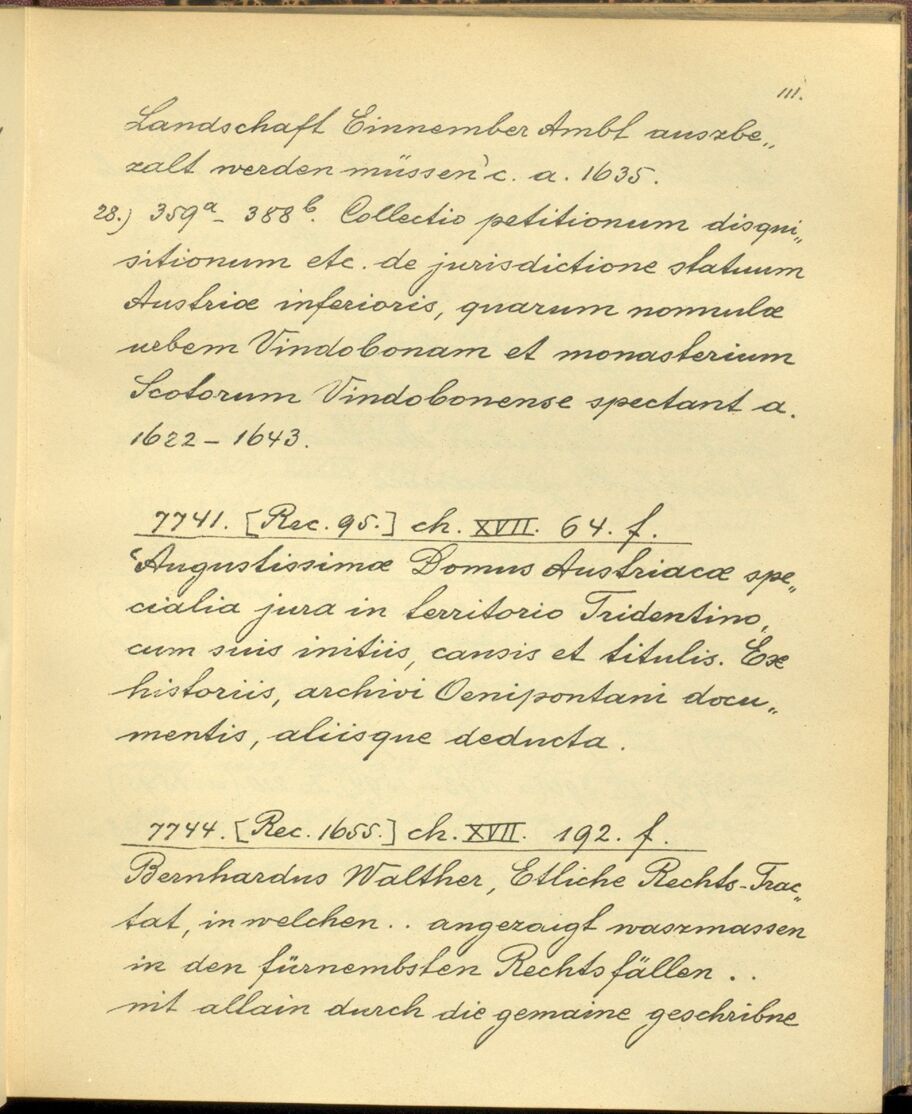 111.
Landschaft Einnember Ambt auszbe„
zalt werden müssen' c. a. 1635.
28.) 359a – 388b. Collectio petitionum disqui„
sitionum etc. de jurisdictione statuum
Austriæ inferioris, quarum nonnulæ
urbem Vindobonam et monasterium
Scotorum Vindobonense spectant a.
1622 – 1643.
7741. [Rec. 95.] ch. XVII. 64. f.
'Augustissimæ Domus Austriacæ spe„
cialia jura in territorio Tridentino,
cum suis initiis, causis et titulis. Ex
historiis, archivi Oenipontani docu„
mentis, aliisque deducta.
7744. [Rec. 1655.] ch. XVII. 192. f.
Bernhardus Walther, Etliche Rechts-Trac„
tat, in welchen .. angezaigt waszmassen
in den fürnembsten Rechtsfällen ..
nit allain durch die gemaine geschribne